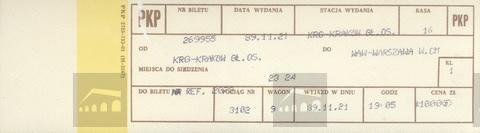 PKP
NR BILETU DATA WYDANIA STACJA WYDANIA KASA
PKP
269955 89.11.21 KRG-KRAKÓW GŁ.OS. 16
OD DO
KRG-KRAKÓW GŁ.OS. WAW-WARSZAWA W.CM
MIEJSCA DO SIEDZENIA KL
23 24 1
DO BILETU NR REF. POCIĄG NR WAGON WYJAZD W DNIU GODZ CENA ZŁ
3102 9 89.11.21 19:05